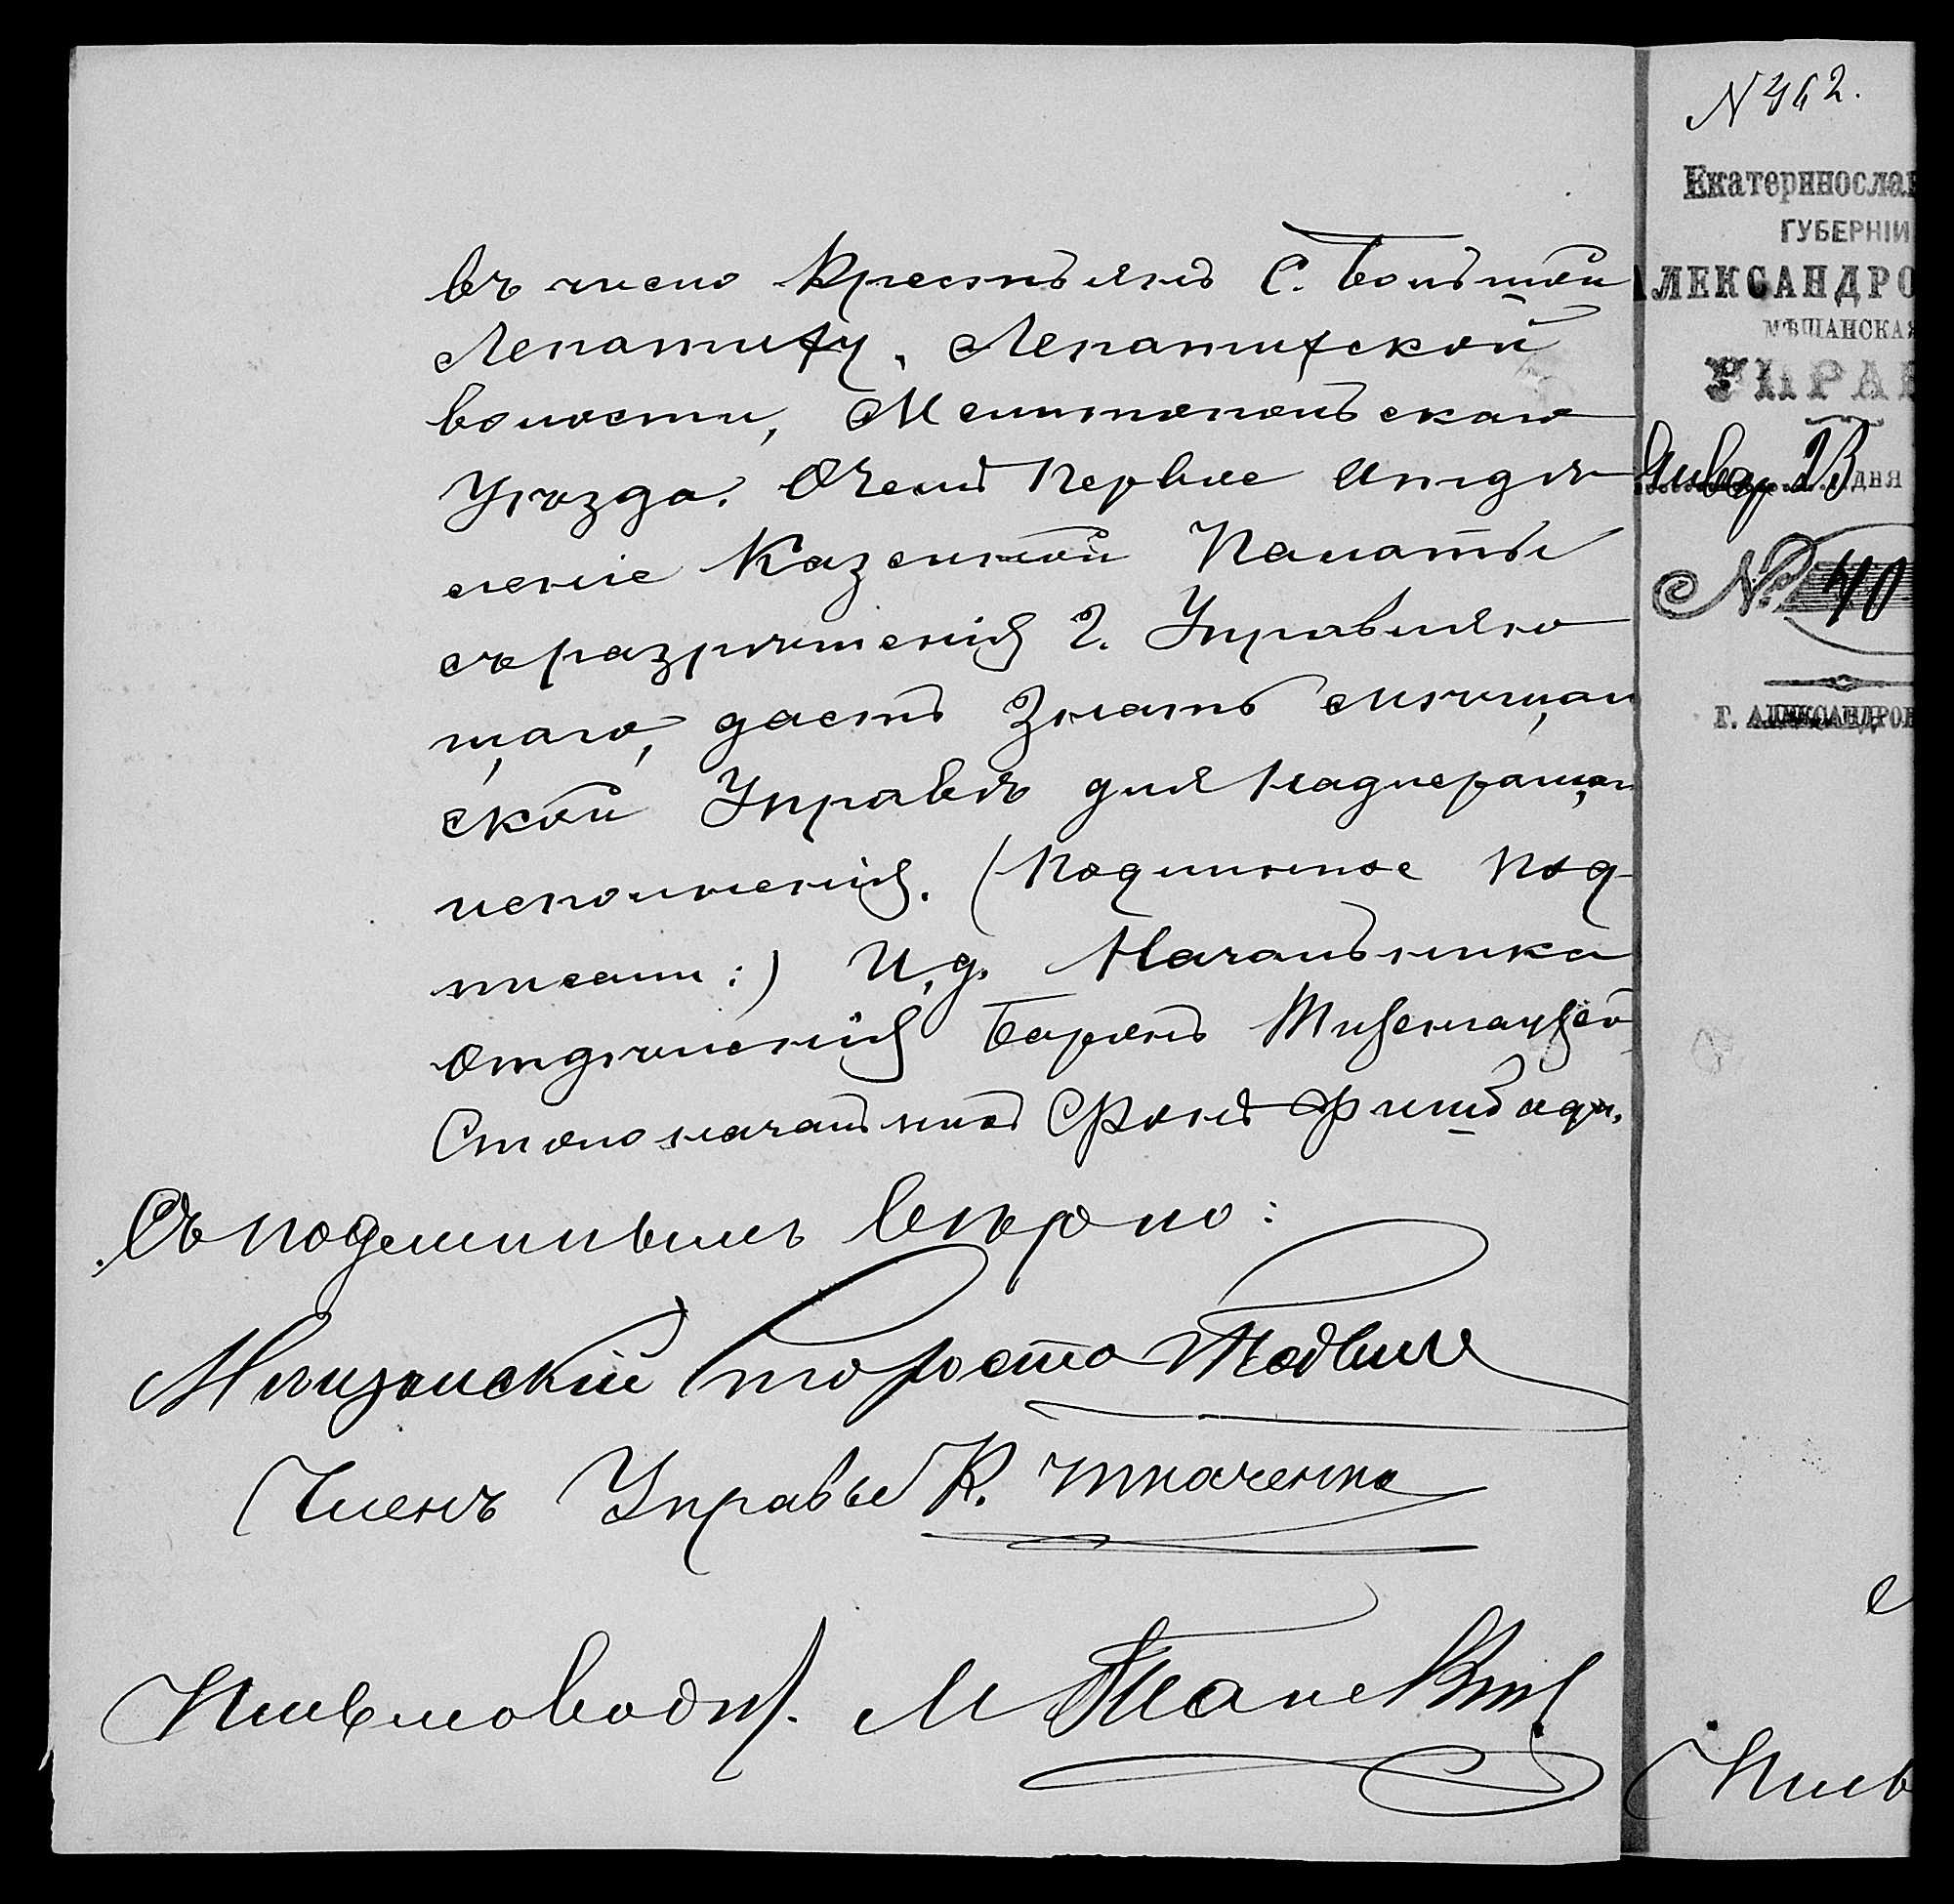 въ число Крестьянъ С. Большой
Лепатиху, Лепатихской
волости, Мелитопольскаго
Уѣзда. О чемъ Первое Отдѣ
леніе Казенной Палаты
съ разрѣшенія Г. Управляю
щаго, даетъ знать мѣщан
ской Управѣ для надлежащаго
исполненія. (Подлинное под
писали:) И. д. Начальника
Отдѣленія Баронъ Тизенгаузенъ
Столоначальникъ Фонъ
Съ подлиннымъ вѣрно:
Мѣщанскій Староста
Членъ Управы К. Ткаченко
Письмоводит. М
N 462.
Екатериносла
ГУБЕРНІИ
АЛЕКСАНДРО
МѢЩАНСКАЯ
УПРАВ
Январ 23 дня
№ 40
Г. АЛЕКСАНДРОВ
Пись